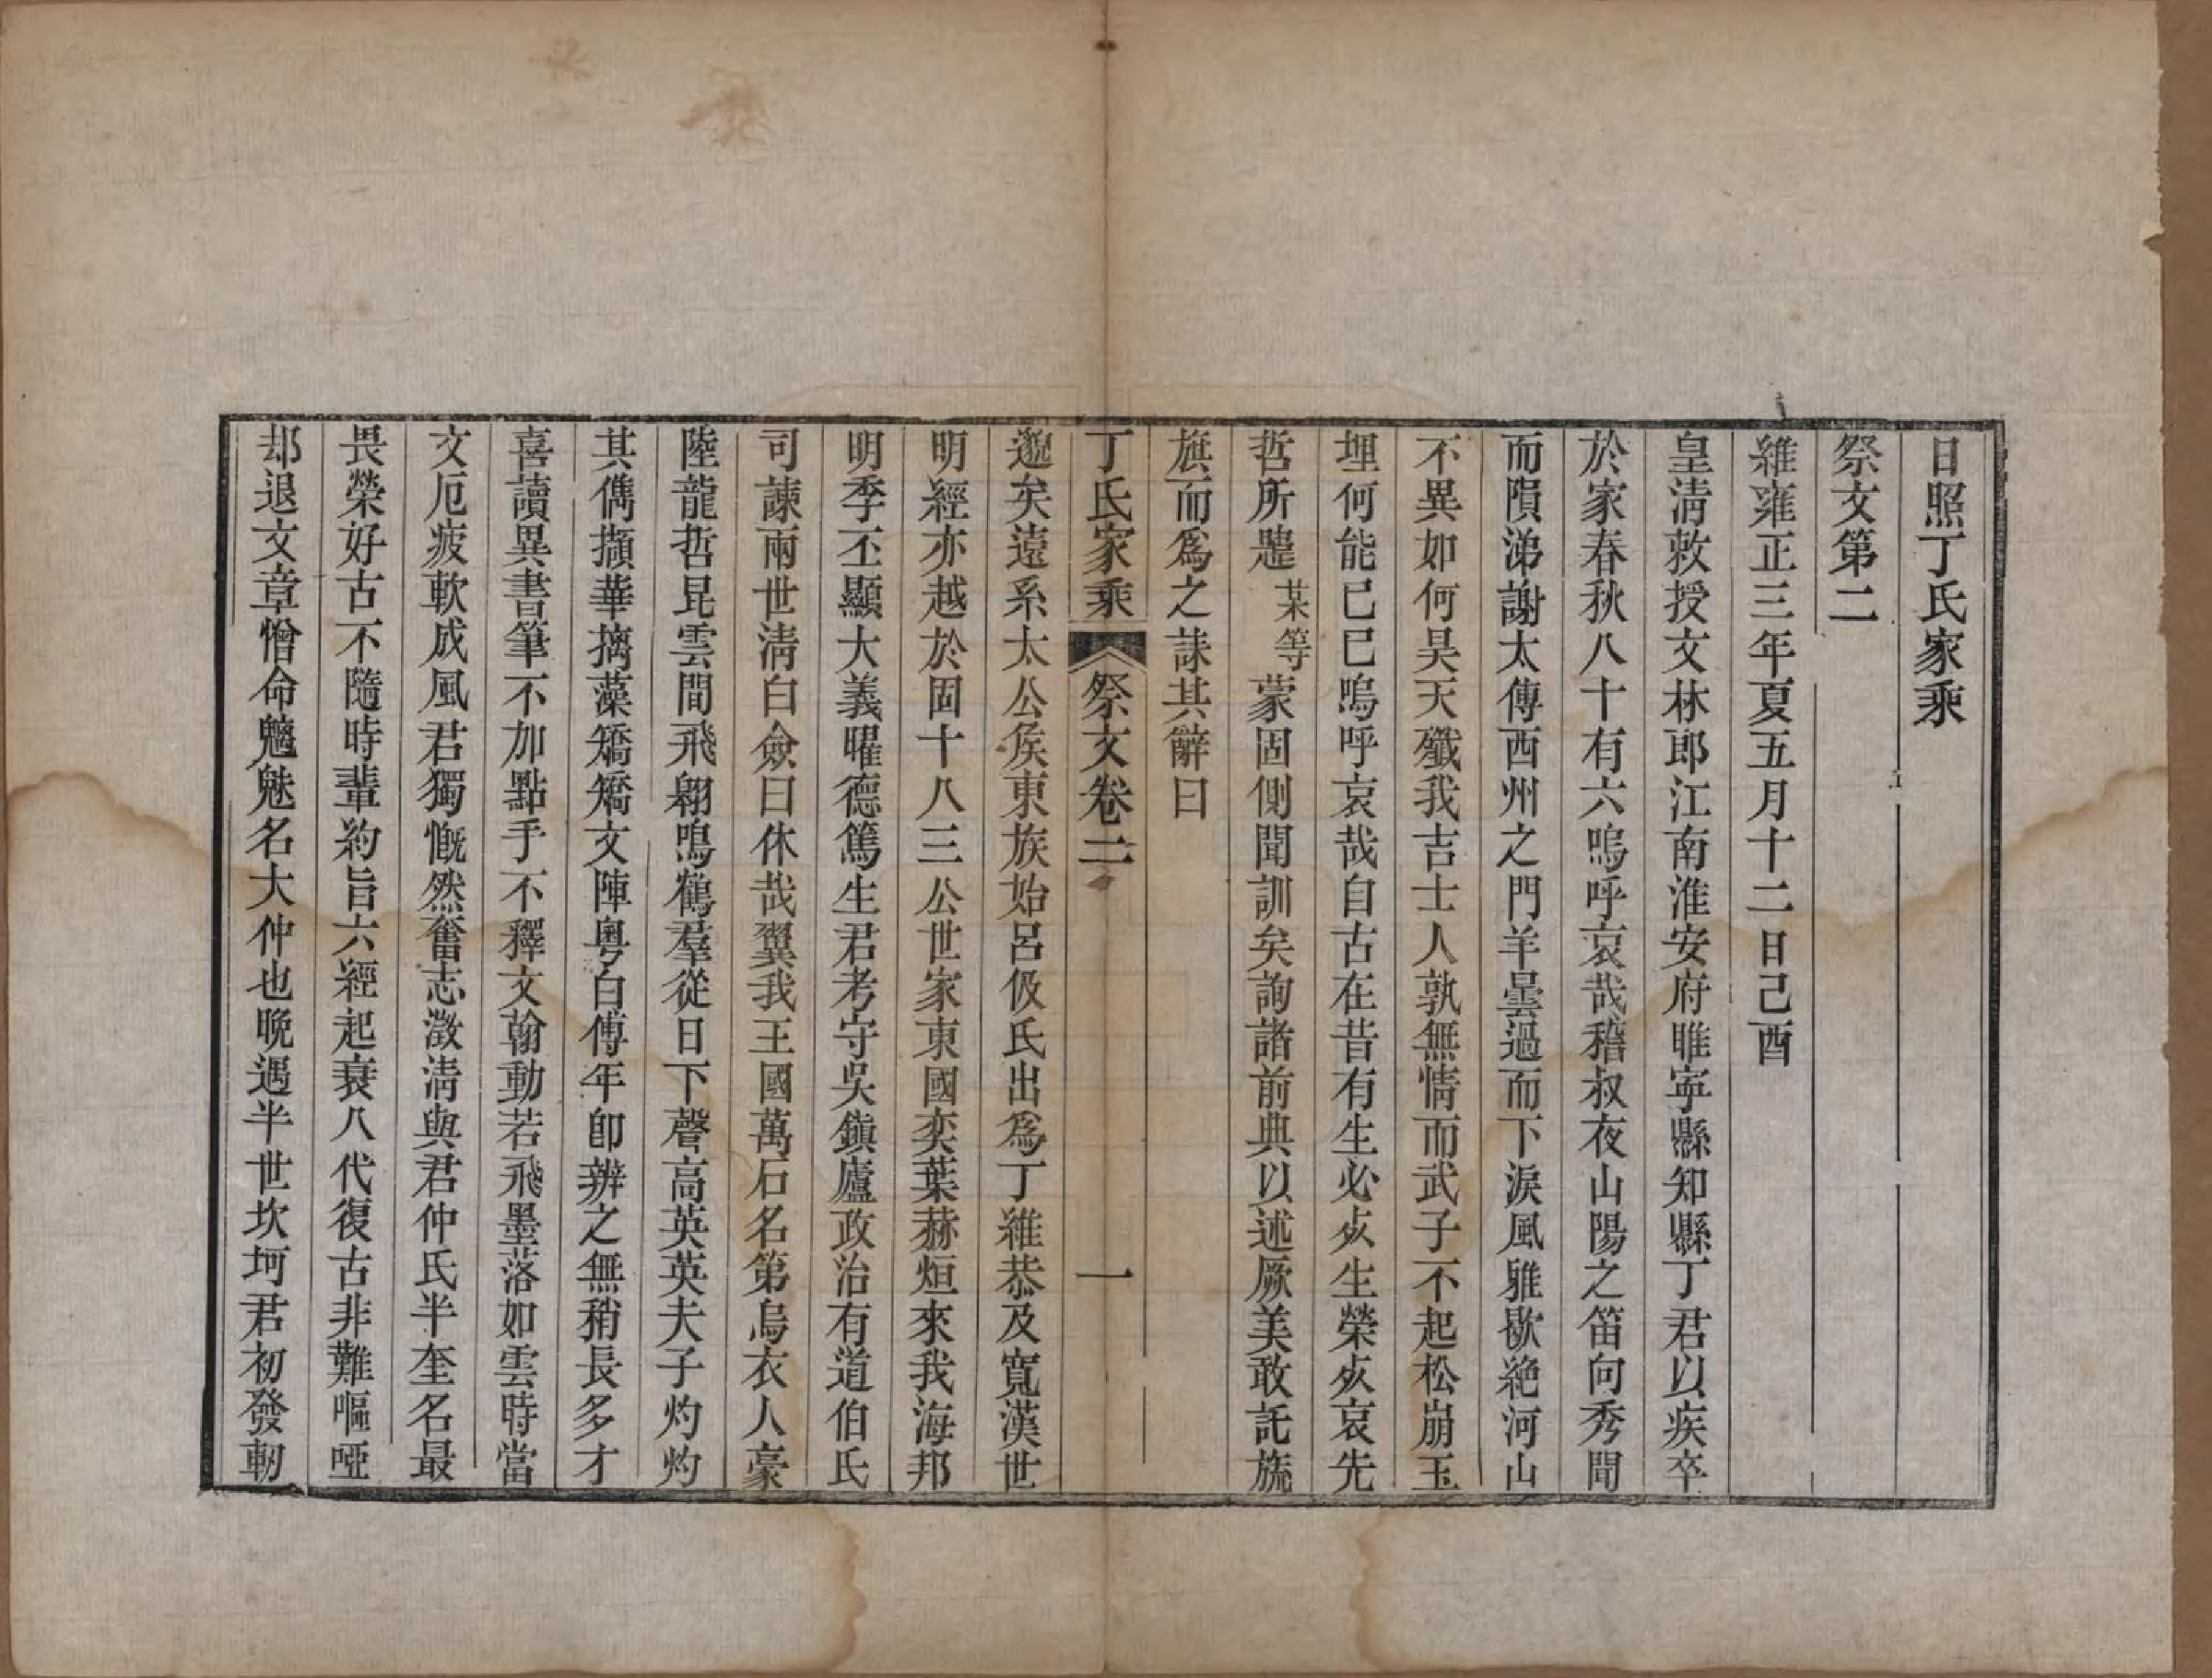 日照丁氏家乘
祭文第二
維雍正三年夏五月十二日己酉
皇清敕授文林郎江南淮安府睢寧縣知縣丁君以疾卒
於家春秋八十有六嗚呼哀哉稽叔夜山陽之笛向秀聞
而隕涕謝太傅西州之門羊曇過而下淚風雅歇絶河山
不異如何昊天殲我吉士人孰無情而武子不起松崩玉
埋何能已已嗚呼哀哉自古在昔有生必歿生榮歿哀先
哲所韙某等蒙固側聞訓矣詢諸前典以述厥美敢託旒
旐而爲之誄其辭曰
丁氏家乘 祭文卷二 一
邈矣遠系太公侯東族始呂伋氏出爲丁維恭及寬漢世
明經亦越於固十八三公世家東國奕葉赫烜來我海邦
明季丕顯大義曜德篤生君考守吳鎭廬政治有道伯氏
司諫兩世淸白僉曰休哉翼我王國萬石名第烏衣人豪
陸龍哲昆雲間飛翺鳴鶴羣從日下聲高英英夫子灼灼
其儁擷華摛藻矯矯文陣粤白傅年卽辨之無稍長多才
喜讀異書筆不加點手不釋文翰動若飛墨落如雲時當
文厄疲軟成風君獨慨然奮志澂清與君仲氏半奎名最
畏榮好古不隨時輩約旨六經起衰八代復古非難嘔啞
却退文章憎命魑魅名大仲也晚遇半世坎坷君初發軔